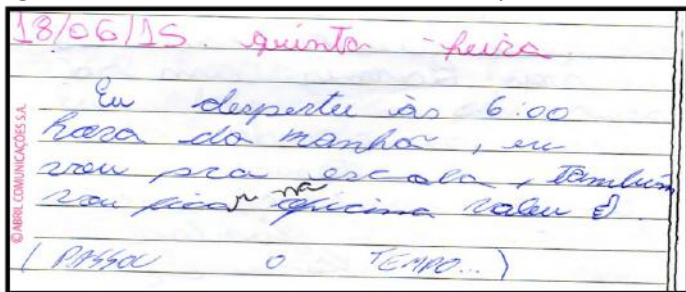 18/06/15. quinta-feira.
Eu desperter às 6:00
hora da manhã, eu
vou pra escola, também
vou ficar na oficina valeu
(PASSOU O TEMPO...)
©ABRIL COMUNICAÇÕES S.A.